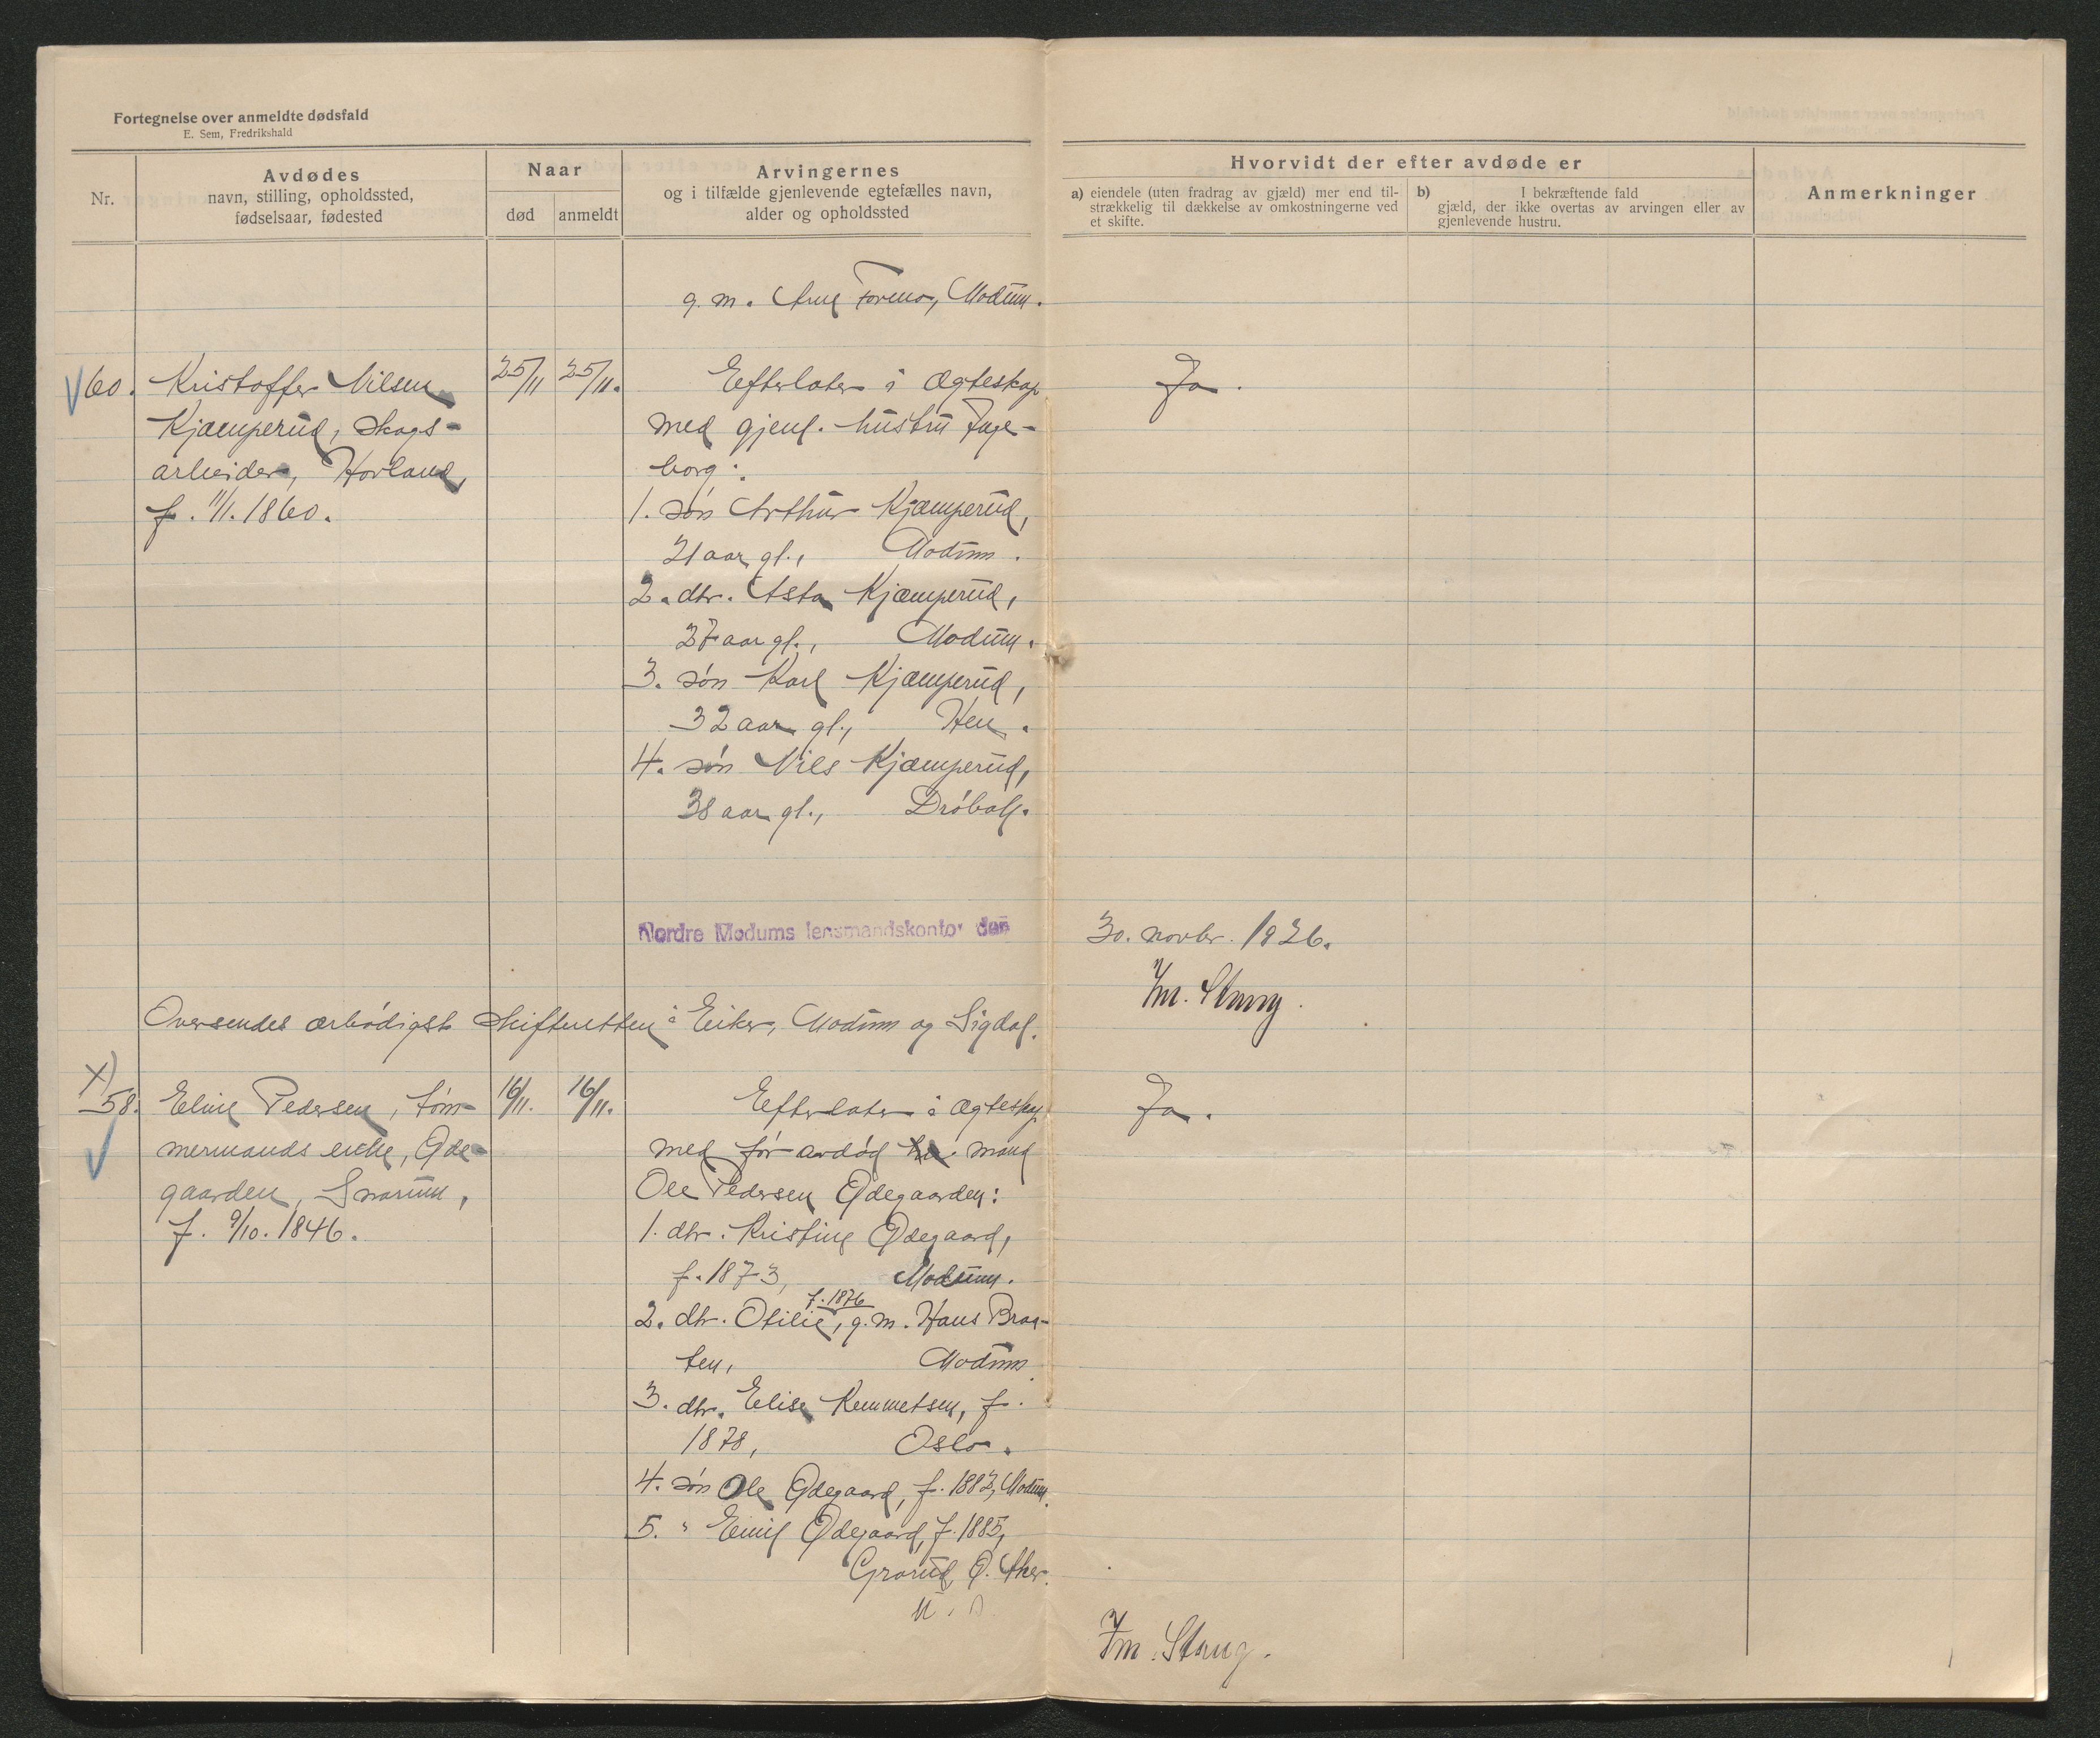 Fortegnelse over anmeldte dødsfald
E. Sem, Fredrikshald
Nr.
Avdødes
navn, stilling, opholdssted,
fødselsaar, fødested
Naar
død
anmeldt
Arvingernes
og i tilfælde gjenlevende egtefælles navn,
alder og opholdssted
Hvorvidt der efter avdøde er
a) eiendele (uten fradrag av gjæld) mer end til-
strækkelig til dækkelse av omkostningerne ved
et skifte.
b) I bekræftende fald
gjæld, der ikke overtas av arvingen eller av
gjenlevende hustru.
Anmerkninger
g. m. Arne Formo, Modum.
60. Kristoffer Nilsen
Kjæmperud, skogs-
arbeider, Hovland,
f. 11/1. 1860.
25/11 25/11.
Efterlater i ægteskap
med gjenl. hustru Inge-
borg:
1. søn Arthur Kjæmperud,
21 aar gl., Modum.
2. dtr. Asta Kjæmperud,
27 aar gl., Modum.
3. søn Karl Kjæmperud,
32 aar gl., Hen.
4. søn Nils Kjæmperud,
38 aar gl., Drøbak.
Ja.
Nordre Modums lensmandskontor den 30. novbr. 1926.
Stang.
Oversendes ærbødigst skifteretten i Eiker, Modum og Sigdal.
x)
58. Eline Pedersen, tøm-
mermands enke, Øde-
gaarden, Snarum,
f. 9/10. 1846.
16/11. 16/11.
Efterlater i ægteskap
med før avdød mand
Ole Pedersen Ødegaarden:
1. dtr. Kristine Ødegaard,
f. 1873, Modum.
f. 1876
2. dtr. Otilie, g. m. Hans Braa-
ten, Modum.
3. dtr. Elise Kemmetsen, f.
1878, Oslo.
4. søn Ole Ødegaard, f. 1882, Modum.
5. " Emil Ødegaard, f. 1885,
Grorud, Ø. Aker.
Ja.
Stang.